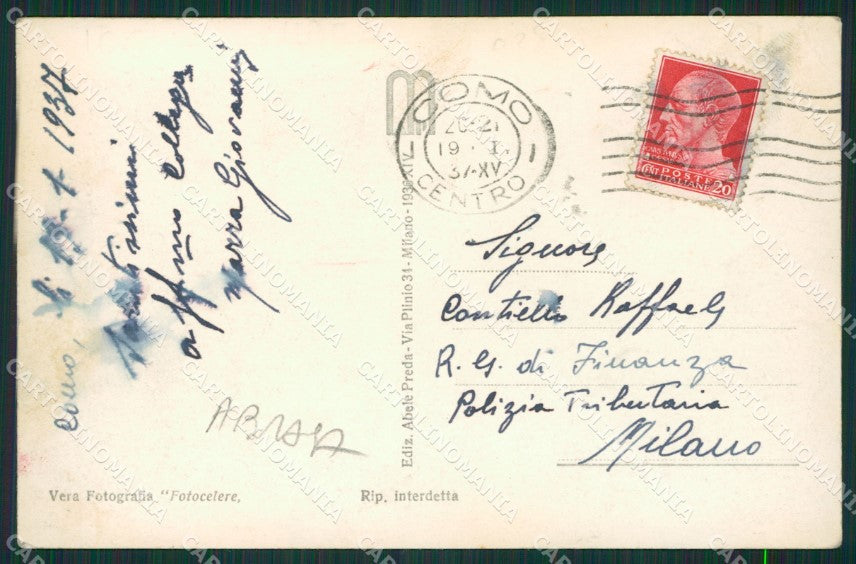 Como, li 1937
affmo Collega
Marra Giovanni
ABRAGA
Vera Fotografia "Fotocelere,
Rip. interdetta
Ediz. Abele Preda - Via Plinio 34 - Milano - 1936 XIV
COMO
20-21
19 · I ·
37·XV
CENTRO
POSTE
ITALIANE
20
Signore
Contiello Raffaele
R. G. di Finanza
Polizia Tributaria
Milano
CARTOLINOMANIA